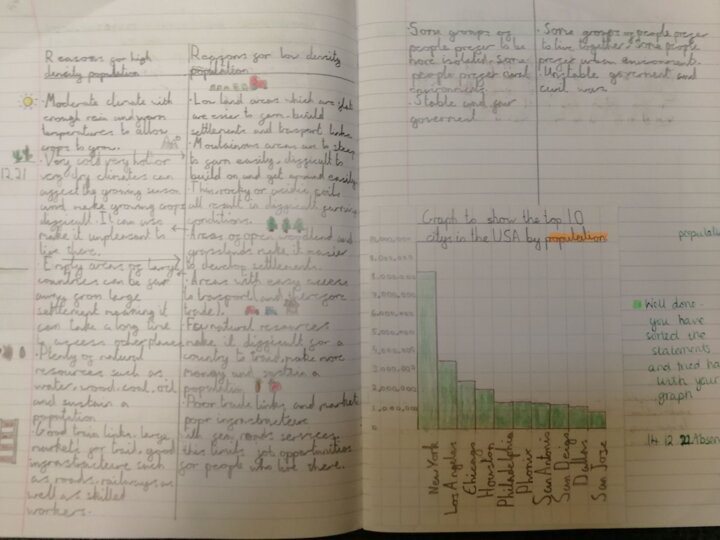 Reasons for high
density population
· Moderate climate with
enough rain and warm
temperatures to allow
crops to grow.
· Very cold very hot or
very dry climates can
affect the growing season
and make growing crops
difficult. It can also
make it unpleasant to
live there.
· Empty areas of large
countries can be far
away from large
settlement meaning it
can take a long time
to access other places
· Plenty of natural
resources such as
water, wood, coal, oil
and sustain a
population.
· Good train links, large
markets for trail, good
infrastructure such
as roads, railways as
well as skilled
workers.
12.21
Reasons for low density
population
· Low land areas which are flat
are easier to farm, build
settlements and transport links.
· Moutainous areas are to steep
to farm easily, difficult to
build on and get around easily
· Thin, rocky or acidic soils
all result in difficult
conditions.
· Areas of open woodland and
grasslands make it easier
to develop settlements.
· Areas with easy access
to transport and therefore
trade
· Few natural resources
make it difficult for a
country to trade, make more
money and sustain a
population
· Poor trade links and markets
poor infrastructure
all roads services
this limits job opportunities
for people who live there.
· Some groups of
people prefer to be
more isolated. Some
people prefer rural
environments
· Stable and fair
goverment
· Some groups of people prefer
to live together. Some people
prefer urban environments.
· Unstable goverment and
civil war.
Graph to show the top 10
citys in the USA by population
9,000,000
8,000,000
7,000,000
6,000,000
5,000,000
4,000,000
3,000,000
2,000,000
1,000,000
0
New York
Los Angeles
Chicago
Houston
Philadelphia
Phoenix
San Antonio
San Deigo
Dallas
San Jose
populati
Well done -
you have
sorted the
statements
and tried ha
with your
graph
14 12 22 Absen